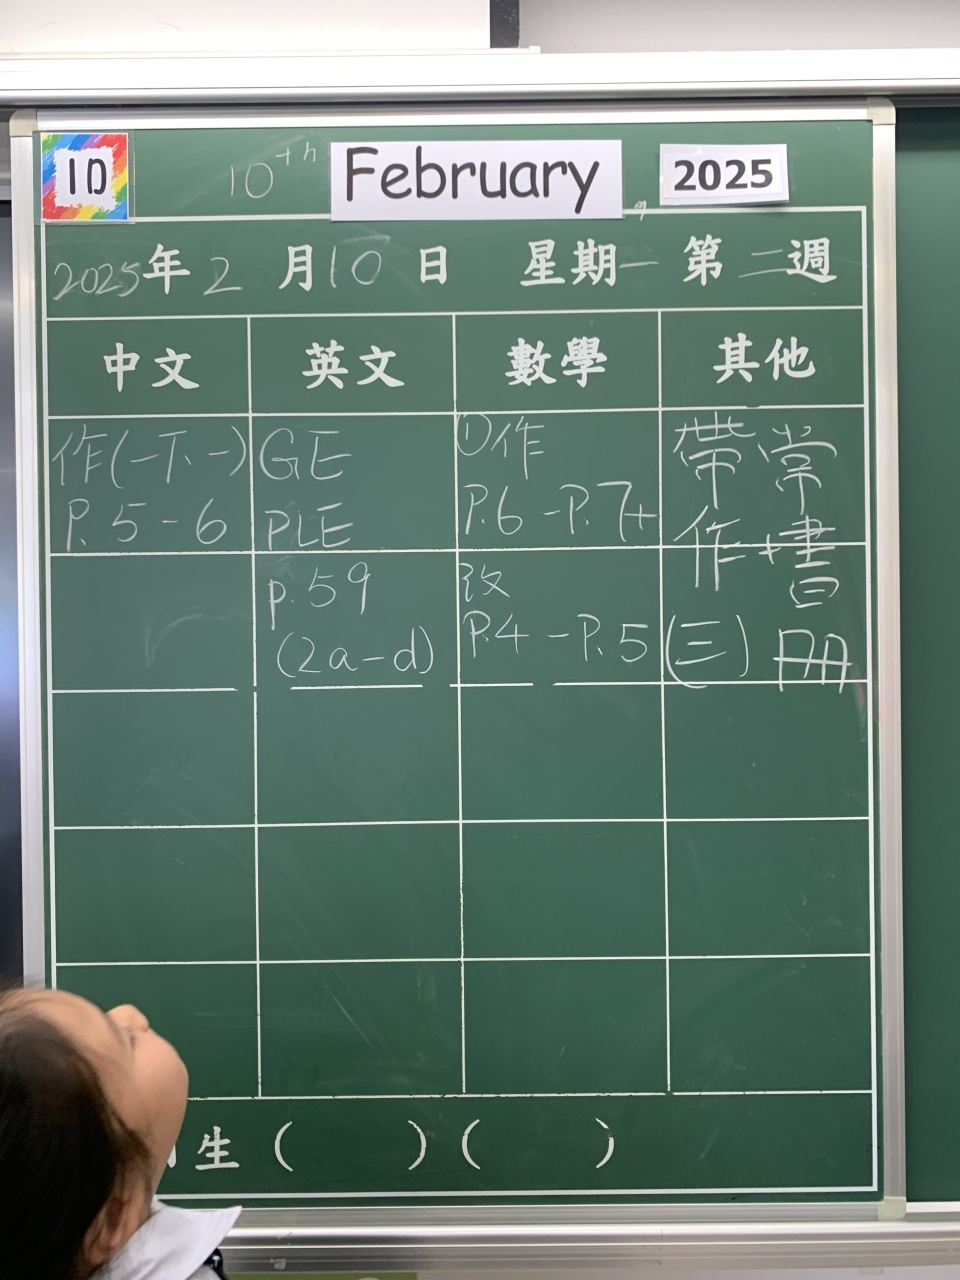 1D
10th February 2025
2025年2月10日 星期一 第二週
中文 英文 數學 其他
作(一下一)
P.5-6
GE
PLE
p.59
(2a-d)
①作
P.6-P.7+
改
P.4-P.5
帶常
作+書
(三)冊
生( )( )